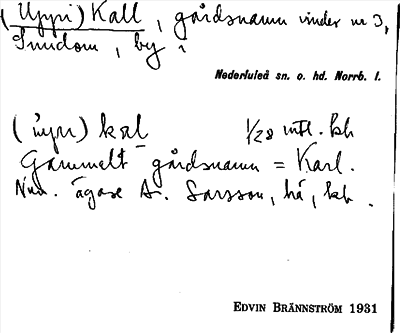 (Uppi) Kall, gårdsnamn under nr 3,
Smedom, by i
Nederluleå sn. o. hd. Norrb. l.
(ụpi) kal 1/28 intl. kh
Gammelt gårdsnamn = Karl.
Nuv. ägare A. Larsson, hä, kh.
EDVIN BRÄNNSTRÖM 1931